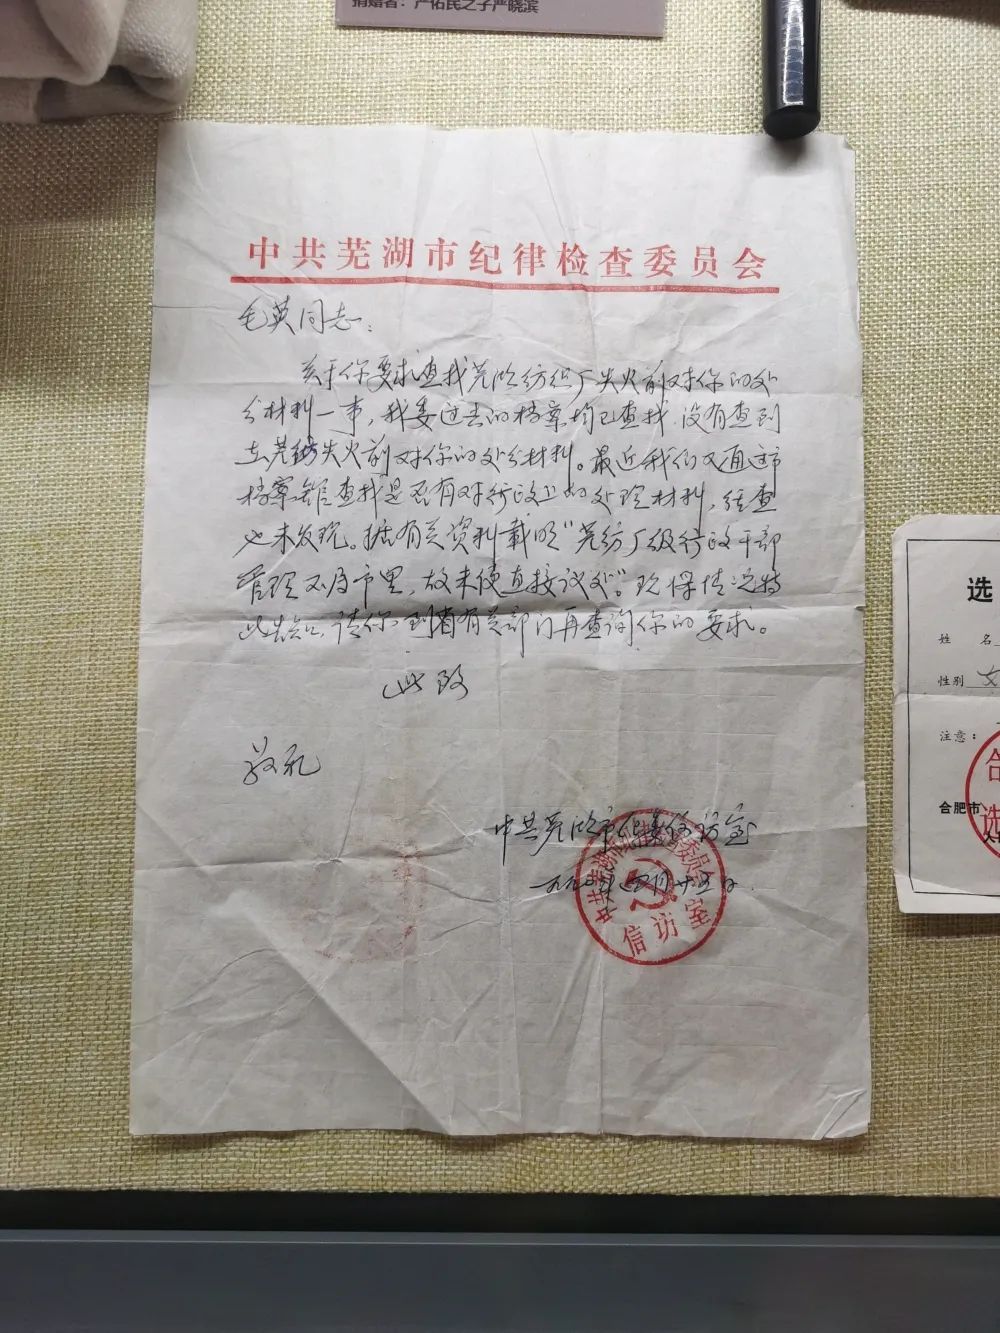 捐赠者：严佑民之子严晓滨
中共芜湖市纪律检查委员会
毛英同志：
关于你要求查找芜湖纺织厂失火前对你的处
分材料一事，我委过去的档案均已查找，没有查到
在芜纺失火前对你的处分材料。最近我们又直达市
档案馆查找是否有对行政上的处理材料，经查
也未发现。据有关资料载明“芜纺厂级行政干部
管理不属市里，故未便直接议处”。现将情况特
此告知，请你到省有关部门再查询你的要求。
此致
敬礼
中共芜湖市纪委信访室
一九九 年四月廿五日
中共芜湖市纪律检查委员会
信访室
选
姓 名
性别 女
注意：
合肥市
合
选